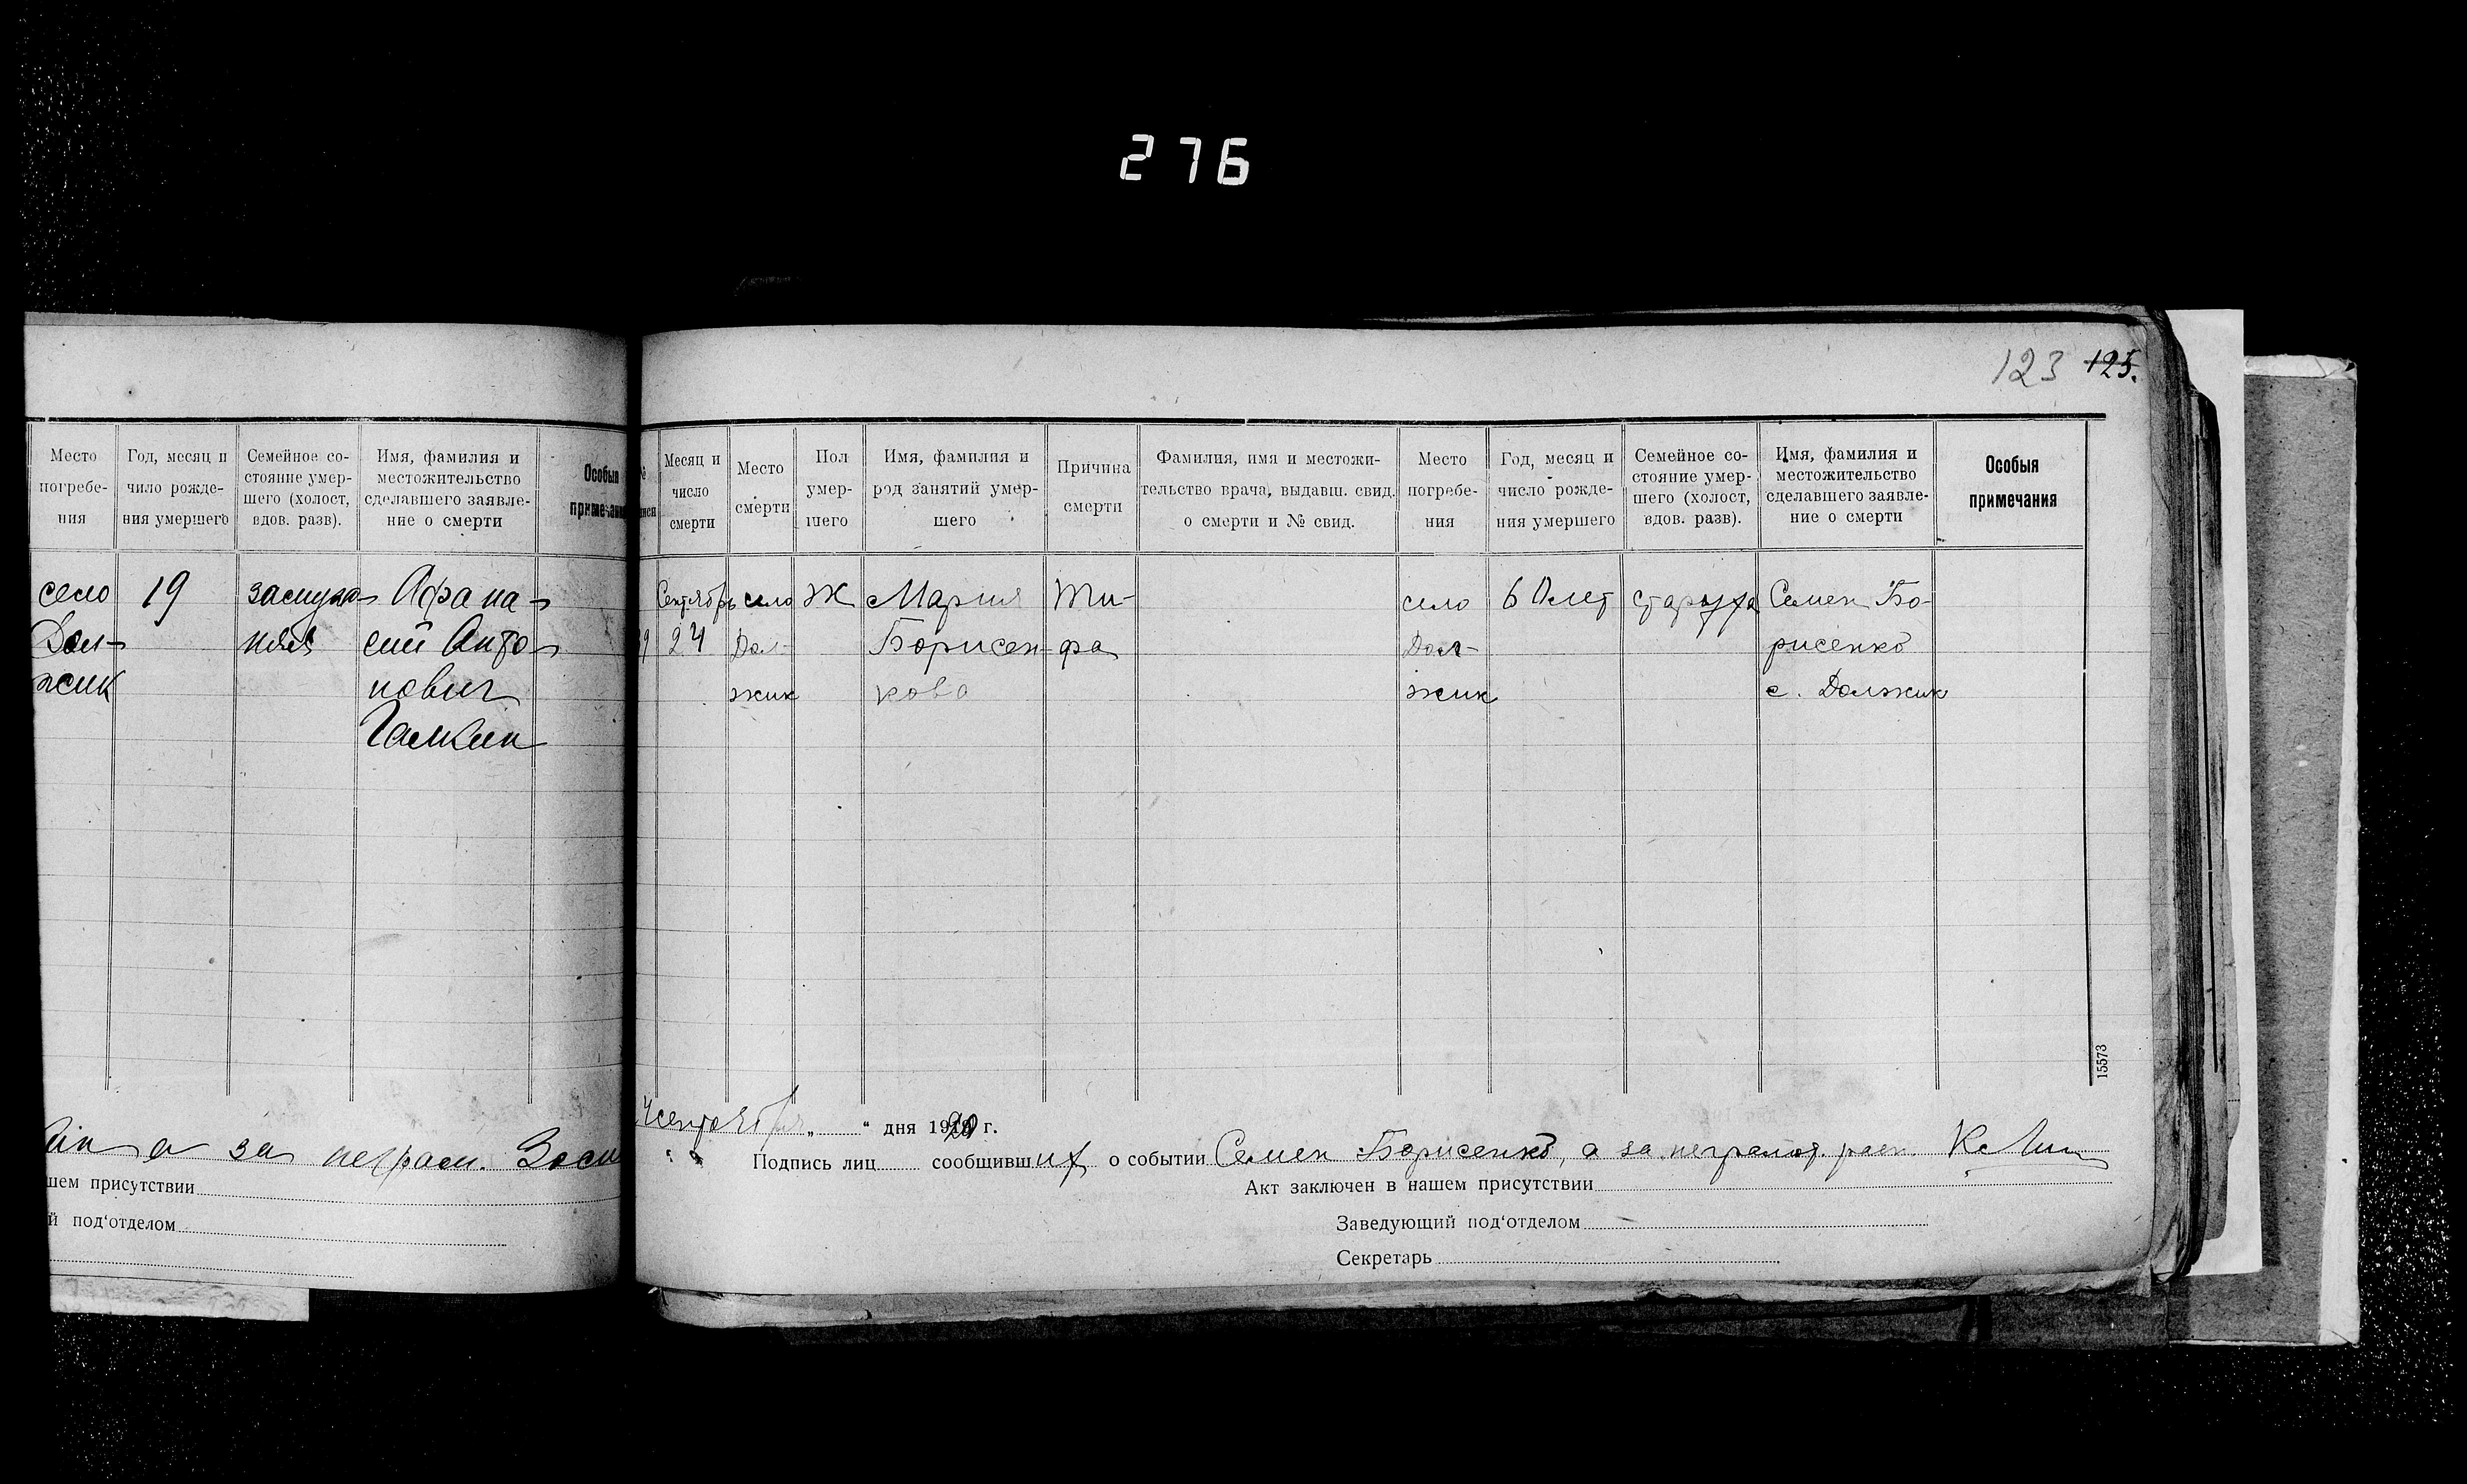 276
123 125.
Место погребе- ния
Год, месяц и число рожде- ния умершего
Семейное со- стояние умер- шего (холост, вдов. разв).
Имя, фамилия и местожительство сделавшего заявле- ние о смерти
Особыя примечания
село 19 замуж- Афана-
Дол- няя сий Анто-
жик нович
Галкин
а за неграм.
шем присутствии
й под‘отделом
№
Месяц и число смерти
Место смерти
Пол умер- шего
Имя, фамилия и род занятий умер- шего
Причина смерти
Фамилия, имя и местожи- тельство врача, выдавш. свид. о смерти и № свид.
Место погребе- ния
Год, месяц и число рожде- ния умершего
Семейное со- стояние умер- шего (холост, вдов. разв).
Имя, фамилия и местожительство сделавшего заявле- ние о смерти
Особыя примечания
Сентябрь село Ж Мария Ти- село 60 лет старуха Семен Бо-
24 Дол- Борисен- фа Дол- рисенко
жик кова жик с. Должик
15573
сентября „ “ дня 1920 г.
Подпись лиц сообщивших о событии Семен Борисенко, а за неграмот. расп.
Акт заключен в нашем присутствии
Заведующий под‘отделом
Секретарь